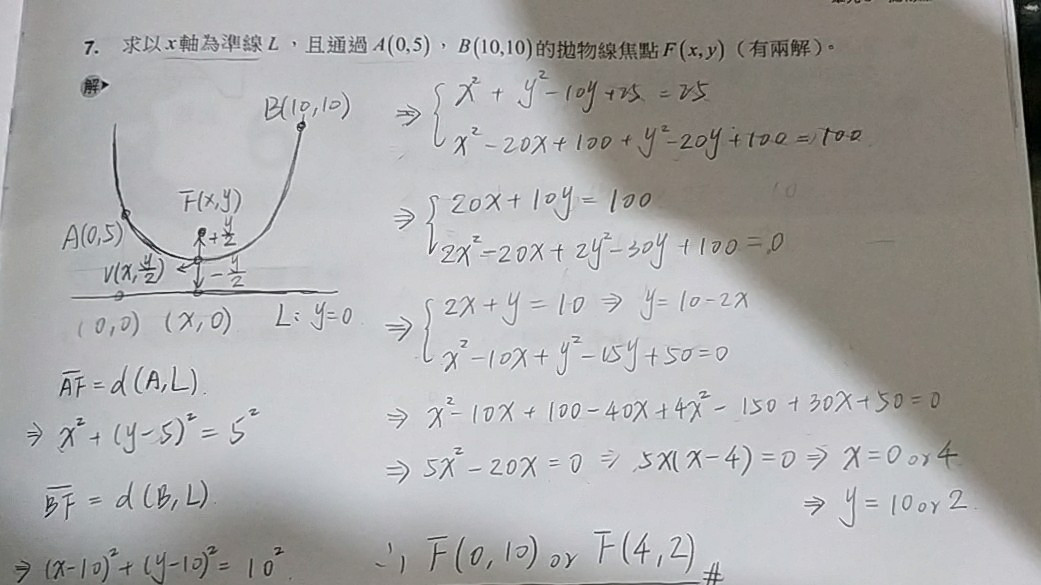 7. 求以x軸為準線L，且通過A(0,5)，B(10,10)的拋物線焦點F(x,y)（有兩解）。
解
B(10,10)
F(x,y)
A(0,5)
+y/2
V(x,y/2)
-y/2
(0,0) (x,0) L: y=0
A̅F̅ = d(A,L).
⇒ x²+(y-5)²=5²
B̅F̅ = d(B,L).
⇒ (x-10)²+(y-10)²=10².
⇒ { x²+y²-10y+25=25
x²-20x+100+y²-20y+100=100
⇒ { 20x+10y=100
2x²-20x+2y²-30y+100=0
⇒ { 2x+y=10 ⇒ y=10-2x
x²-10x+y²-15y+50=0
⇒ x²-10x+100-40x+4x²-150+30x+50=0
⇒ 5x²-20x=0 ⇒ 5x(x-4)=0 ⇒ x=0 or 4
⇒ y=10 or 2.
∴ F(0,10) or F(4,2) #